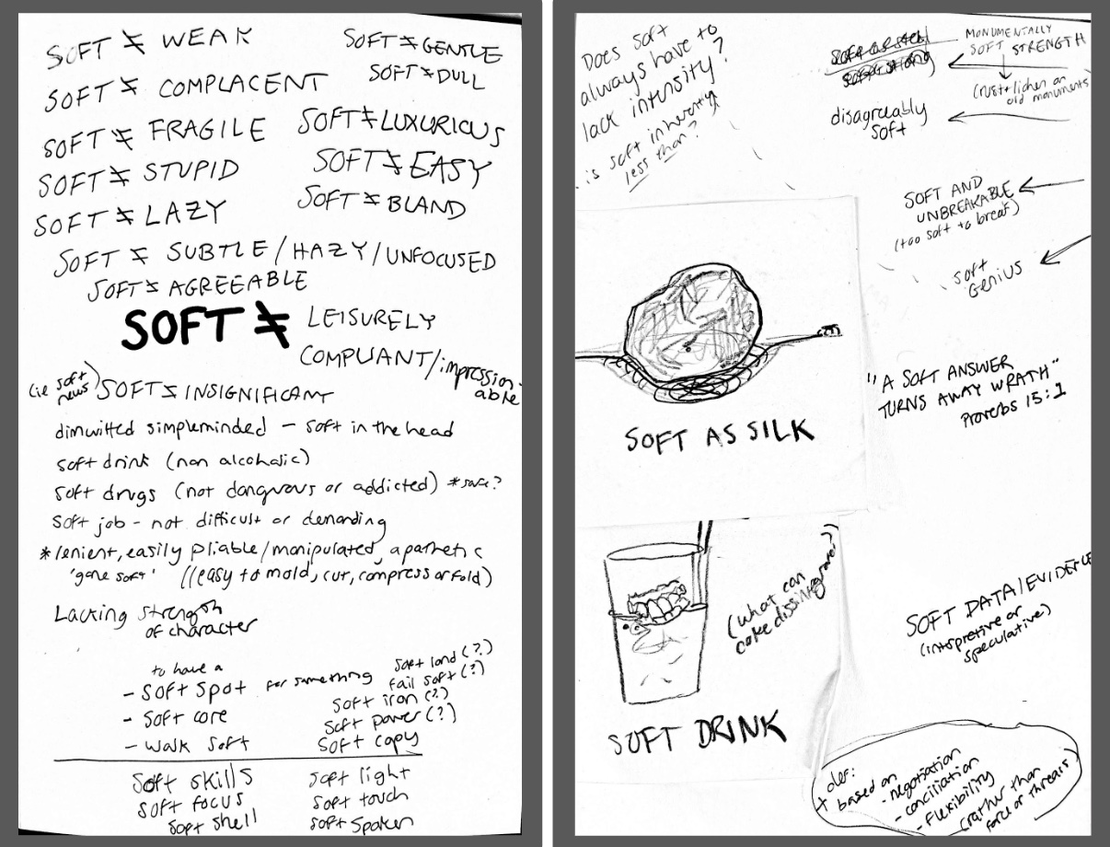 SOFT ≠ WEAK
SOFT ≠ GENTLE
SOFT ≠ DULL
SOFT ≠ COMPLACENT
SOFT ≠ FRAGILE
SOFT ≠ LUXURIOUS
SOFT ≠ STUPID
SOFT ≠ EASY
SOFT ≠ LAZY
SOFT ≠ BLAND
SOFT ≠ SUBTLE / HAZY / UNFOCUSED
SOFT ≠ AGREEABLE
SOFT ≠ LEISURELY
COMPLIANT/impression-
able
(ie soft
news)
SOFT ≠ INSIGNIFICANT
dimwitted simpleminded – soft in the head
soft drink (non alcoholic)
soft drugs (not dangrous or addicted) *safe?
soft job - not difficult or demanding
*lenient, easily pliable/manipulated, apathetic
'gone soft' ((easy to mold, cut, compress or fold)
Lacking strength
of character
to have a
- soft spot for something
- soft core
- walk soft
soft land (?)
fail soft (?)
soft iron (?)
soft power (?)
soft copy
soft skills
soft focus
soft shell
soft light
soft touch
soft spoken
Does soft
always have to
lack intensity?
is soft inherently
less than?
MONUMENTALLY
SOFT STRENGTH
(rust + lichen on
old monuments)
disagreeably
soft
SOFT AND
UNBREAKABLE
(too soft to break)
soft
GENIUS
SOFT AS SILK
"A SOFT ANSWER
TURNS AWAY WRATH"
Proverbs 15:1
(what can
coke dissingrate?)
SOFT DRINK
SOFT DATA/EVIDENCE
(interpretive or
speculative)
* def:
based on
- negotiation
- conciliation
- flexibility
(rather than
force or threats)